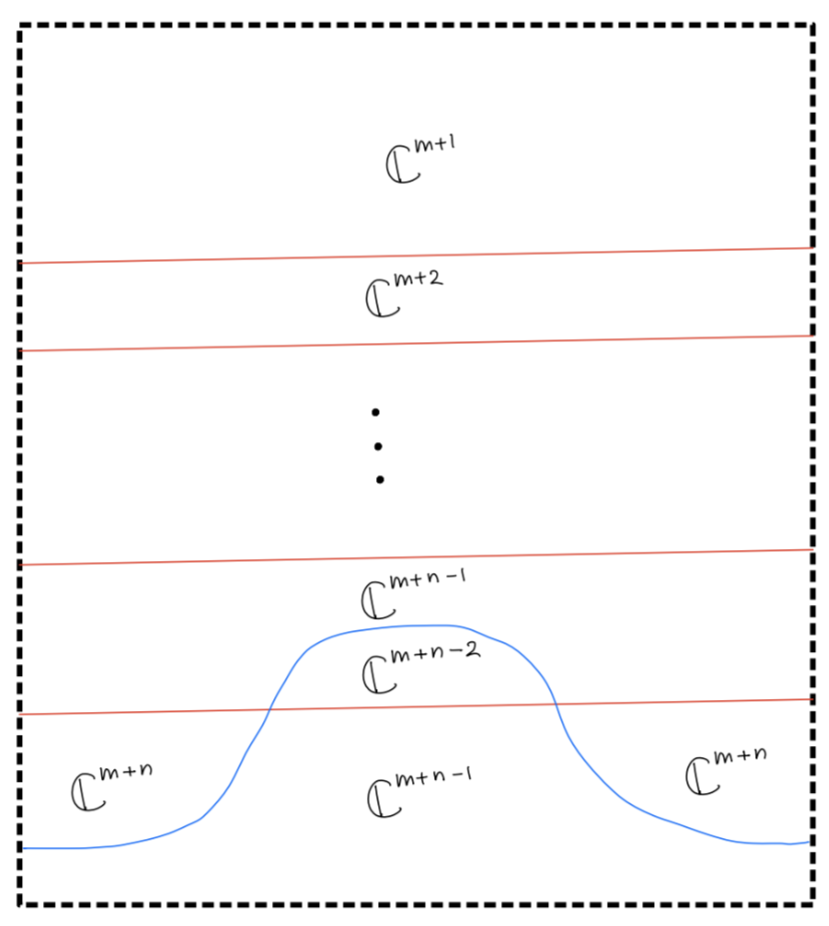 ℂ^{m+1}
ℂ^{m+2}
⋮
ℂ^{m+n-1}
ℂ^{m+n-2}
ℂ^{m+n} ℂ^{m+n-1} ℂ^{m+n}